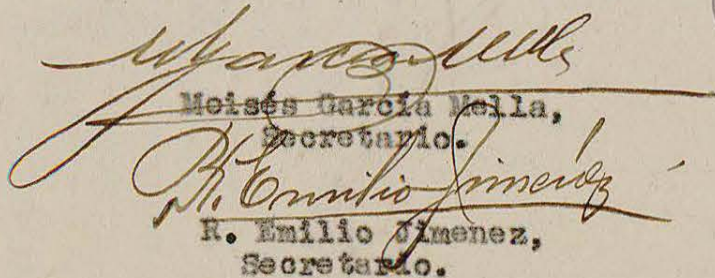 M García Mella
Moisés García Mella,
Secretario.
R. Emilio Jiménez
R. Emilio Jimenez,
Secretario.